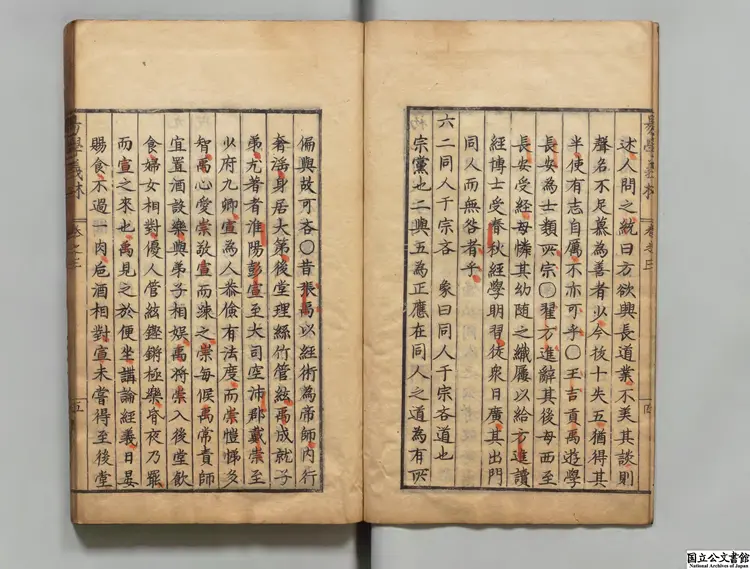 易學義林 卷之三
述人問之統曰方欲興長道業不美其談則
聲名不足慕為善者少今後十失五猶得其
半使有志自厲不亦可乎〇王吉貢禹遊學
長安為士類所宗〇翟方進辭其後母西至
長安受經母憐其幼隨之織屨以給方進讀
經博士受春秋經學明習徒衆日廣其出門
同人而無咎者乎
六二同人于宗吝 象曰同人于宗吝道也
宗黨也二與五為正應在同人之道為有所
偏與故可吝〇昔張禹以經術為帝師內行
奢淫身居大第後堂理絲竹管絃禹成就子
弟尤著者淮陽彭宣至大司空沛郡戴崇至
少府九卿宣為人恭儉有法度而崇愷悌多
智禹心愛崇敬宣而疎之崇每候禹常責師
宜置酒設樂與弟子相娛禹將崇入後堂飲
食婦女相對優人管絃鏗鏘極樂昏夜乃罷
而宣之來也禹見之於便坐講論經義日晏
賜食不過肉卮酒相對宣未嘗得至後堂
易學義林 卷之三 五
国立公文書館
National Archives of Japan